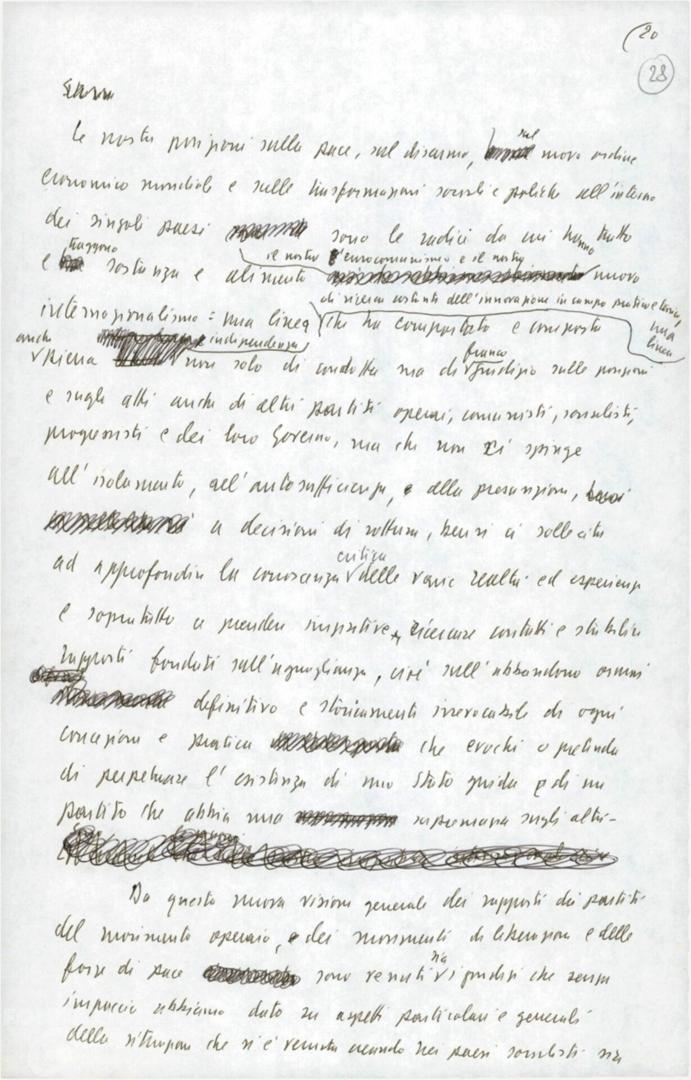 20
28
Le nostre posizioni sulla pace, sul disarmo, sul nuovo ordine
economico mondiale e sulle trasformazioni sociali e politiche all'interno
dei singoli paesi sono le radici da cui hanno tratto
e traggono sostanza e alimento il nostro eurocomunismo e il nostro nuovo
internazionalismo: una linea di ricerca costante dell'innovazione in campo
una linea che ha comportato e comporta
anche piena indipendenza non solo di condotta ma di franco giudizio sulle posizioni
e sugli atti anche di altri partiti operai, comunisti, socialisti,
progressisti e dei loro Governi, ma che non ci spinge
all'isolamento, all'autosufficienza, e alla presunzione,
a decisioni di rottura, bensì ci sollecita
ad approfondire la conoscenza critica delle varie realtà ed esperienze
e soprattutto a prendere iniziative, ricercare contatti e stabilire
rapporti fondati sull'eguaglianza, cioè sull'abbandono ormai
definitivo e storicamente irrevocabile di ogni
concezione e pratica che evochi o pretenda
di perpetuare l'esistenza di uno Stato guida e di un
partito che abbia una supremazia sugli altri.
Da questa nuova visione generale dei rapporti dei partiti
del movimento operaio, e dei movimenti di liberazione e delle
forze di pace sono venuti i giudizi che senza
impaccio abbiamo dato su aspetti particolari e generali
della situazione che si è venuta creando nei paesi socialisti sia